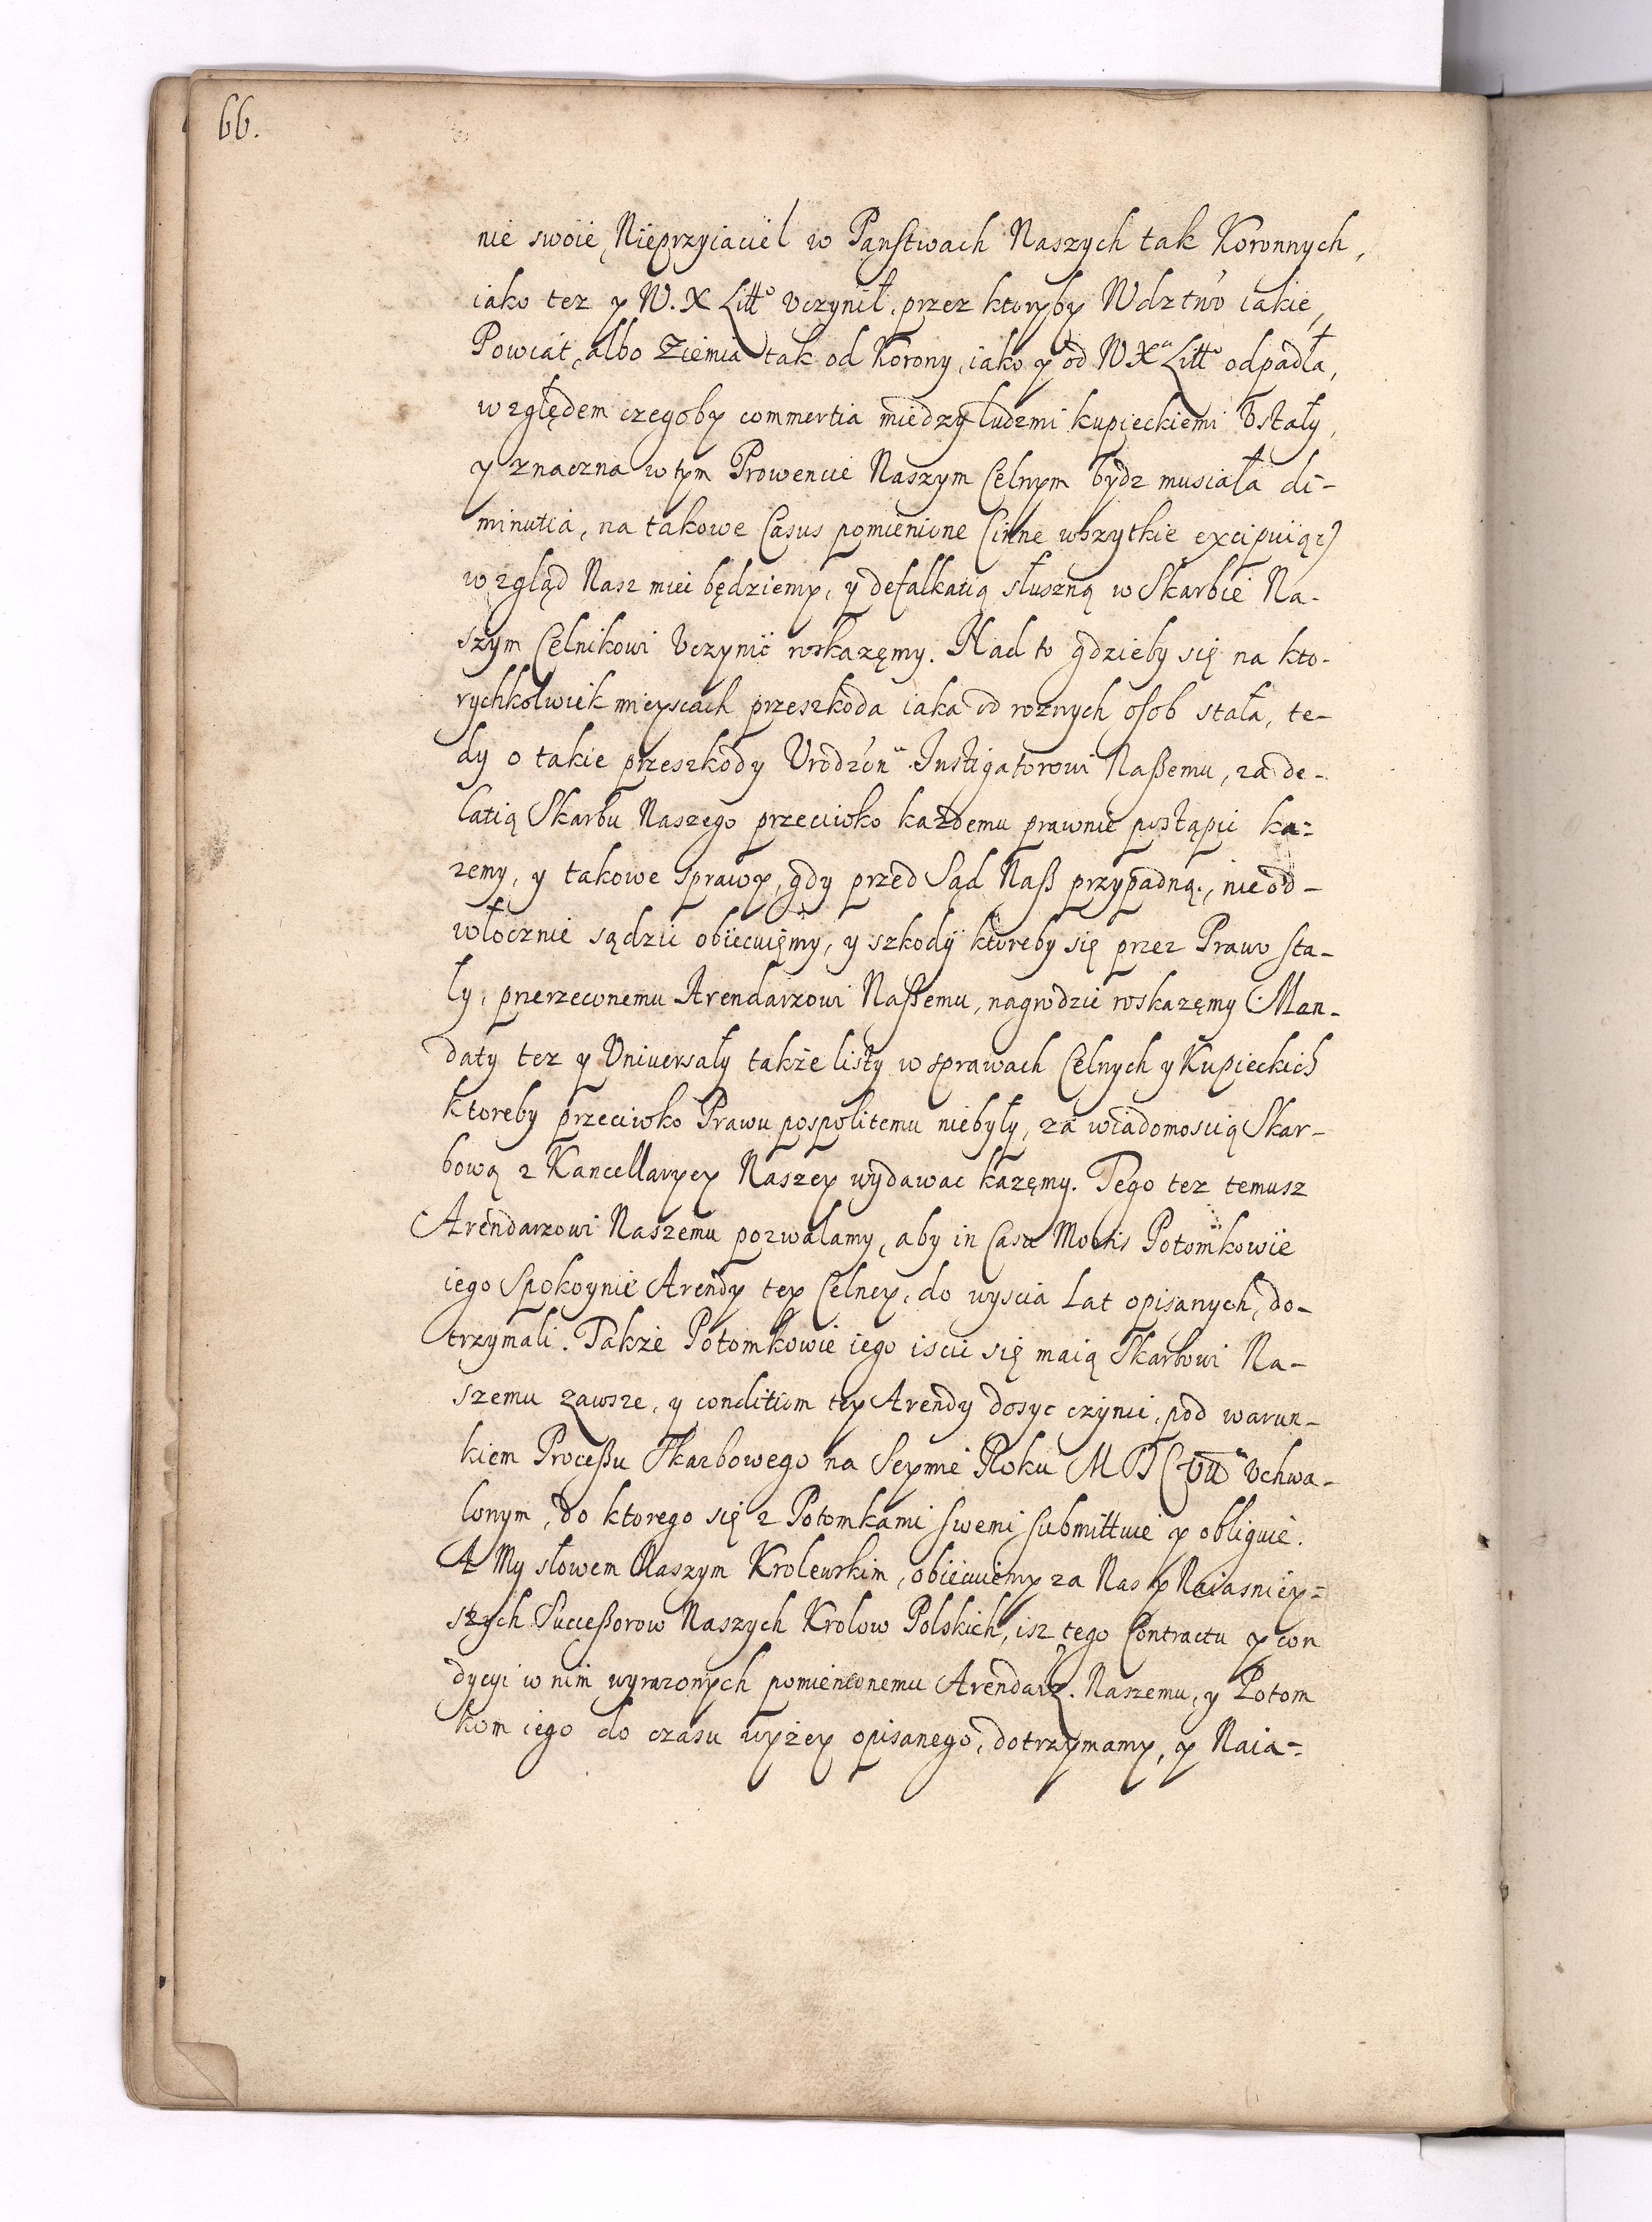 66.
nie swoie Nieprzyiaciel w Państwach Naszych tak Koronnych,
iako tez y W. X Litto vczynił, przez ktoryby Wdztwo iakie,
Powiat, albo Ziemia tak od Korony, iako y od W X Litto odpadła,
względem czegoby commertia miedzy ludzmi kupieckiemi Vstały,
y znaczna w tym Prowencie Naszym Celnym bydz musiała di-
minutia, na takowe Casus pomienione (inne wszytkie excipuiąc)
wzgląd Nasz miec będziemy, y defalkatią słuszną w Skarbie Na-
szym Celnikowi Vczynic roskazęmy. Nad to gdzieby się na kto-
rychkolwiek mieyscach przeszkoda iaka od roznych osob stała, te-
dy o takie przeszkody Vrodzon Instigatorowi Naßemu, za de-
latią Skarbu Naszego przeciwko kazdemu prawnie postąpic ka=
zemy, y takowe sprawy, gdy przed Sąd Naß przypadną, nieod-
włocznie sądzic obiecuięmy, y szkody ktoreby się przez Prawo sta-
ły, przerzeconemu Arendarzowi Naßemu, nagrodzic roskazęmy. Man-
daty tez y Vniversały takze listy w sprawach Celnych y Kupieckich
ktoreby przeciwko Prawu pospolitemu niebyły, za wiadomoscią Skar-
bową z Kancellaryey Naszey wydawac kazęmy. Tego tez temusz
Arendarzowi Naszemu pozwalamy, aby in Casu Mortis Potomkowie
iego Spokoynie Arendy tey Celney, do wyscia Lat opisanych, do-
trzymali. Takze Potomkowie iego iscic się maią Skarbowi Na-
szemu zawsze, y conditiom tey Arendy dosyc czynic, pod warun-
kiem Proceßu Skarbowego na Seymie Roku M D C VII Vchwa-
lonym, do ktorego się z Potomkami swemi submittuie y obliguie.
A My słowem Naszym Krolewskim, obiecuiemy za Nas y Naiasniey=
szych Succeßorow Naszych Krolow Polskich, isz tego Contractu y con
dycyi w nim wyrazonych pomienionemu Arendarz. Naszemu, y Potom
kom iego do czasu wyzey opisanego, dotrzymamy, y Naia=